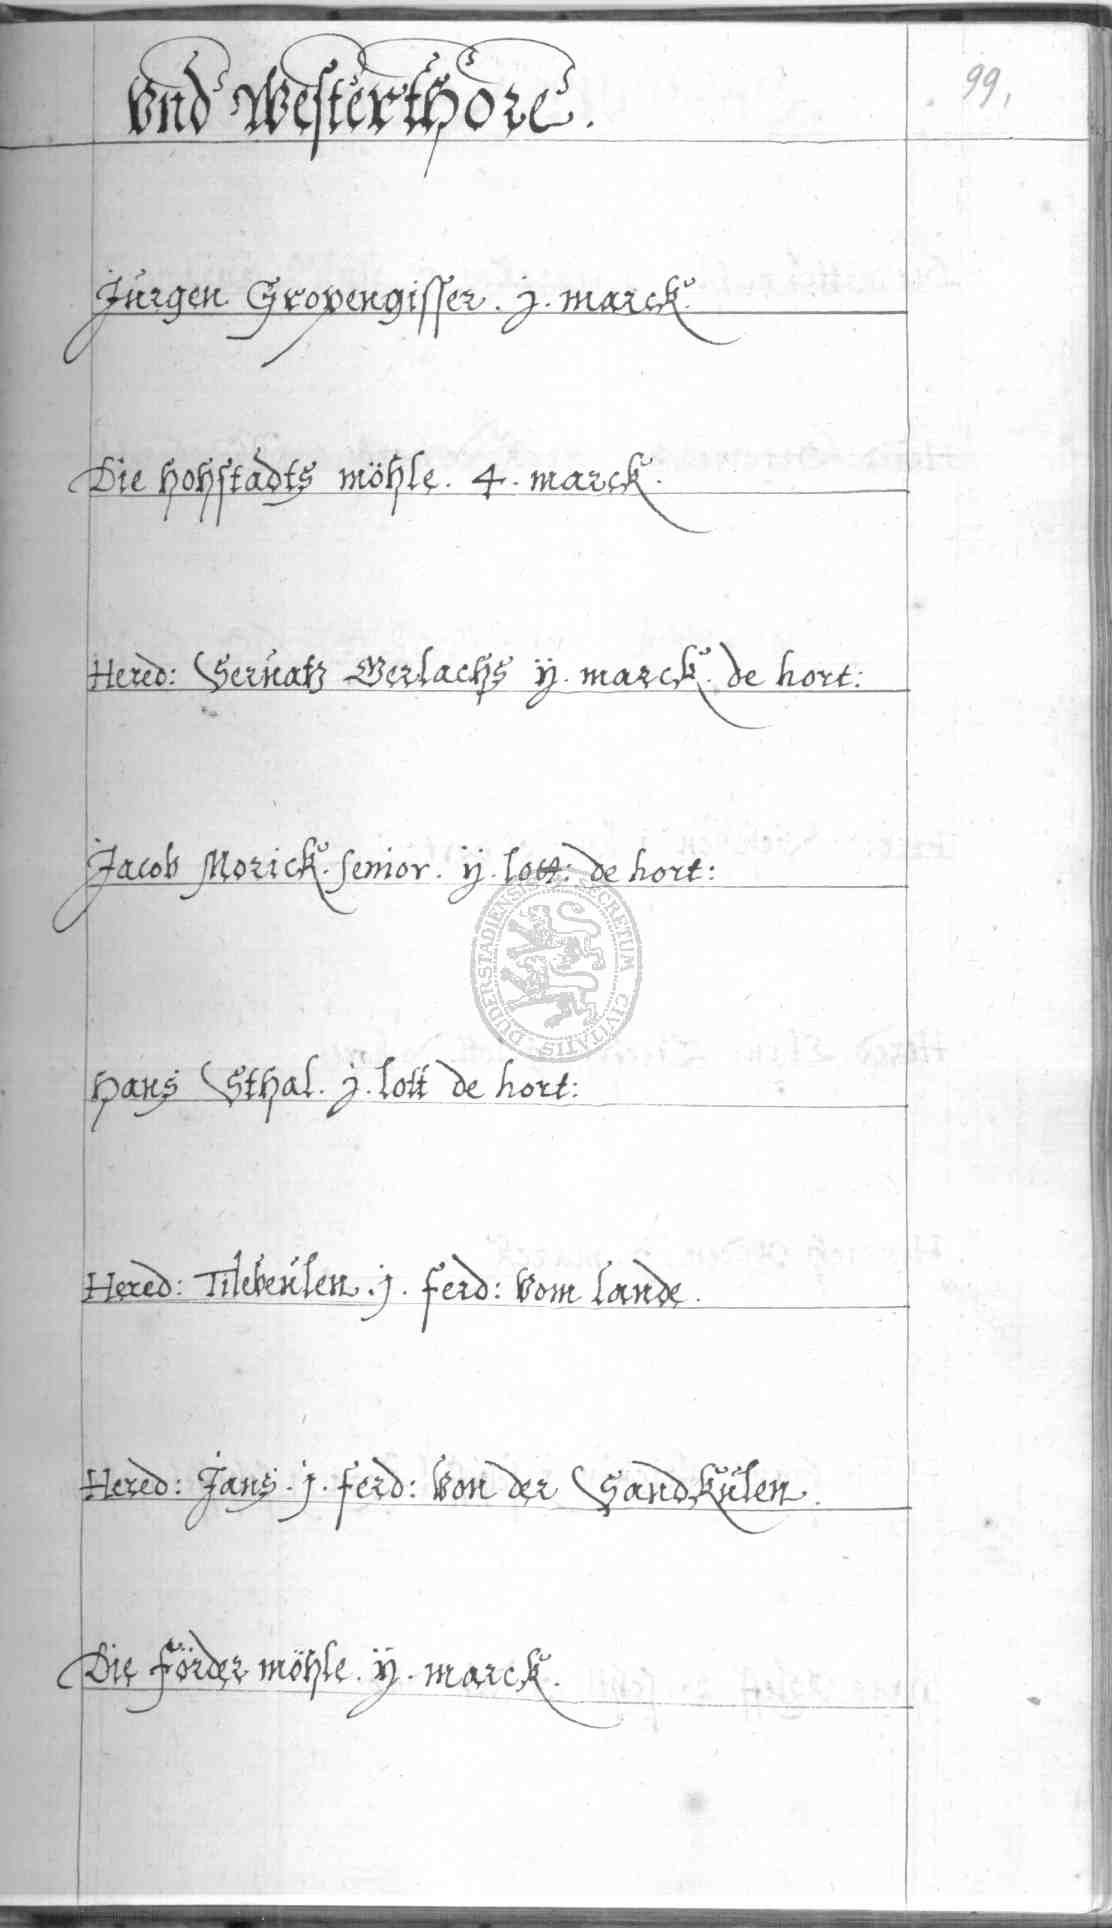 99,
Vnd Westerthore.
Jürgen Gropengisser. j. marck.
Die hohstadts möhle. 4. marck.
Hered: Sernatz Gerlachs ÿ. marck. de hort:
Jacob Morick. senior. ÿ. lott: de hort:
SECRETUM CIVITATIS DUDERSTADIENSIS
Hans Sthal. j. lott de hort:
Hered: Tilebeulen. j. ferd: Vom lande.
Hered: Jans. j. ferd: Von der Sandkulen.
Die förder möhle. ÿ. marck.